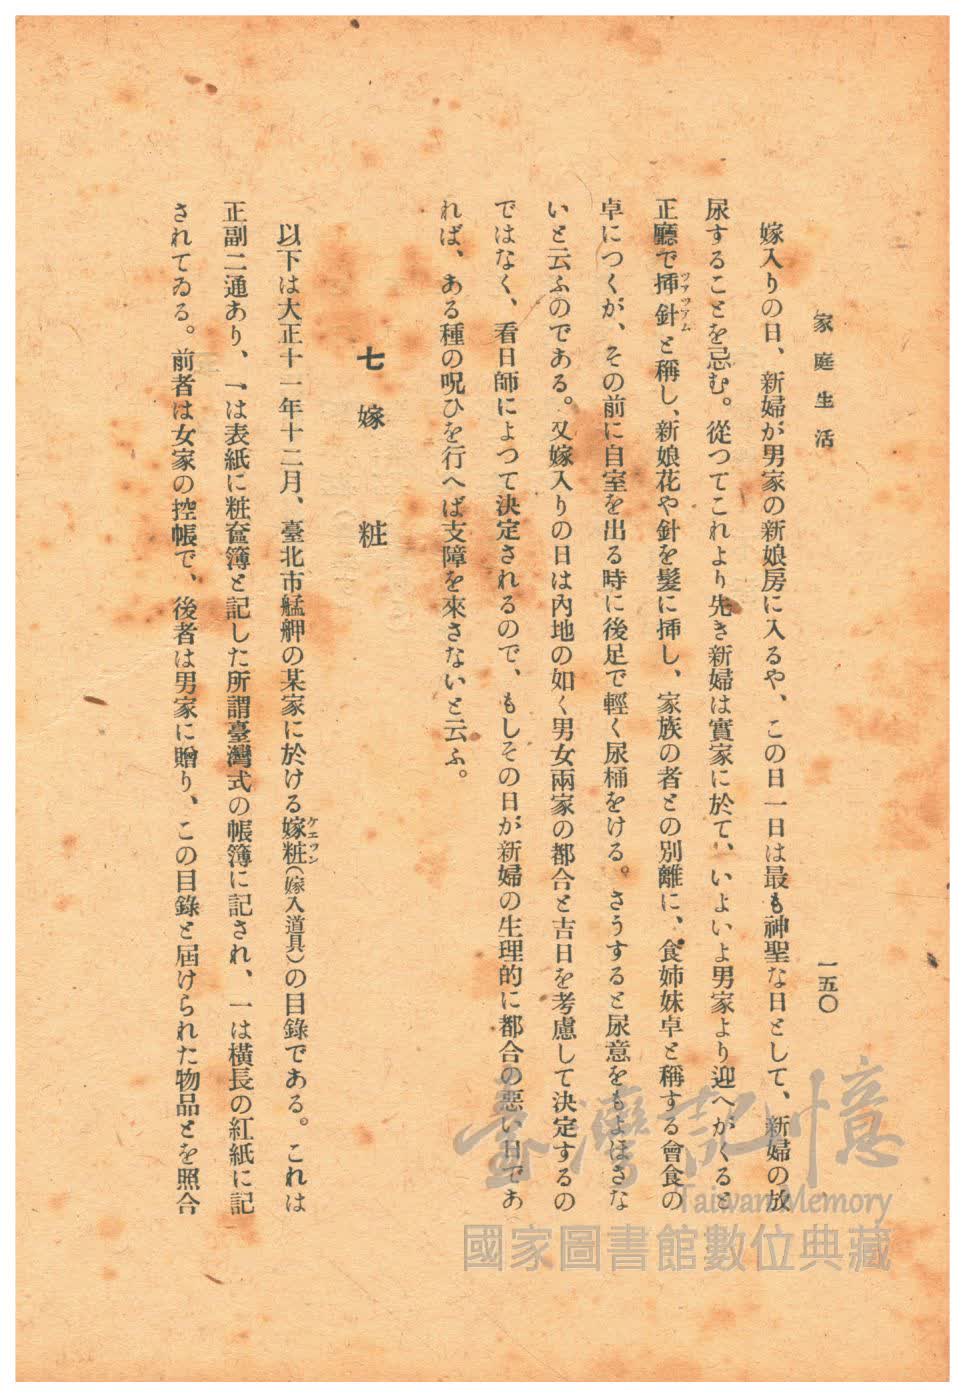 家庭生活
一五〇
嫁入りの日、新婦が男家の新娘房に入るや、この日一日は最も神聖な日として、新婦の放
尿することを忌む。從つてこれより先き新婦は實家に於て、いよいよ男家より迎へがくると
正廳で插針と稱し、新娘花や針を髮に插し、家族の者との別離に、食姉妹卓と稱する會食の
ツアツアム
卓につくが、その前に自室を出る時に後足で輕く尿桶をける。さうすると尿意をもよほさな
いと云ふのである。又嫁入りの日は內地の如く男女兩家の都合と吉日を考慮して決定するの
ではなく、看日師によつて決定されるので、もしその日が新婦の生理的に都合の惡い日であ
れば、ある種の呪ひを行へば支障を來さないと云ふ。
七 嫁 粧
以下は大正十一年十二月、臺北市艋舺の某家に於ける嫁粧(嫁入道具)の目錄である。これは
ケエツン
正副二通あり、一は表紙に粧奩簿と記した所謂臺灣式の帳簿に記され、一は橫長の紅紙に記
されてゐる。前者は女家の控帳で、後者は男家に贈り、この目錄と屆けられた物品とを照合
臺灣記憶
Taiwan Memory
國家圖書館數位典藏